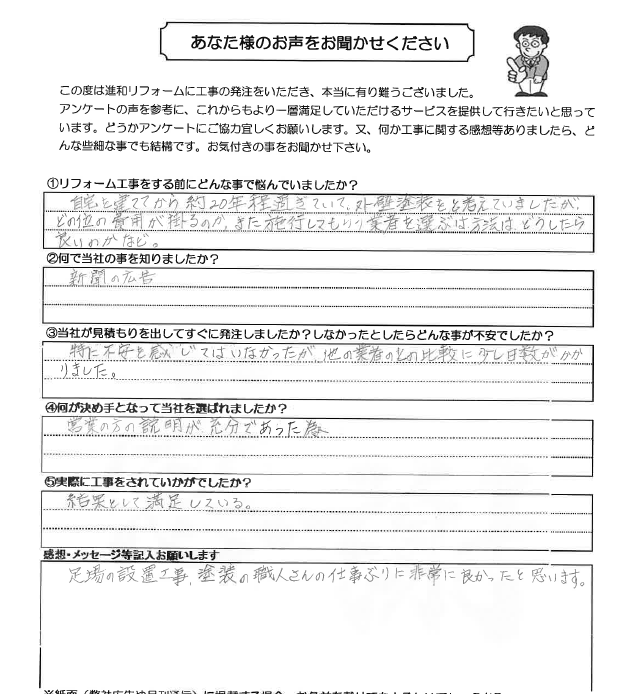 あなた様のお声をお聞かせください
この度は進和リフォームに工事の発注をいただき、本当に有り難うございました。
アンケートの声を参考に、これからもより一層満足していただけるサービスを提供して行きたいと思って
います。どうかアンケートにご協力宜しくお願いします。又、何か工事に関する感想等ありましたら、ど
んな些細な事でも結構です。お気付きの事をお聞かせ下さい。
①リフォーム工事をする前にどんな事で悩んでいましたか？
自宅を建ててから約20年程過ぎていて、外壁塗装をと考えていましたが、
どの位の費用が掛るのか、また施行してもらう業者を選ぶ方法はどうしたら
良いのかなど。
②何で当社の事を知りましたか？
新聞の広告
③当社が見積もりを出してすぐに発注しましたか？しなかったとしたらどんな事が不安でしたか？
特に不安を感じてはいなかったが、他の業者のとの比較に少し日数がかか
りました。
④何が決め手となって当社を選ばれましたか？
営業の方の説明が充分であった為
⑤実際に工事をされていかがでしたか？
結果として満足している。
感想・メッセージ等記入お願いします
足場の設置工事、塗装の職人さんの仕事ぶりに非常に良かったと思います。